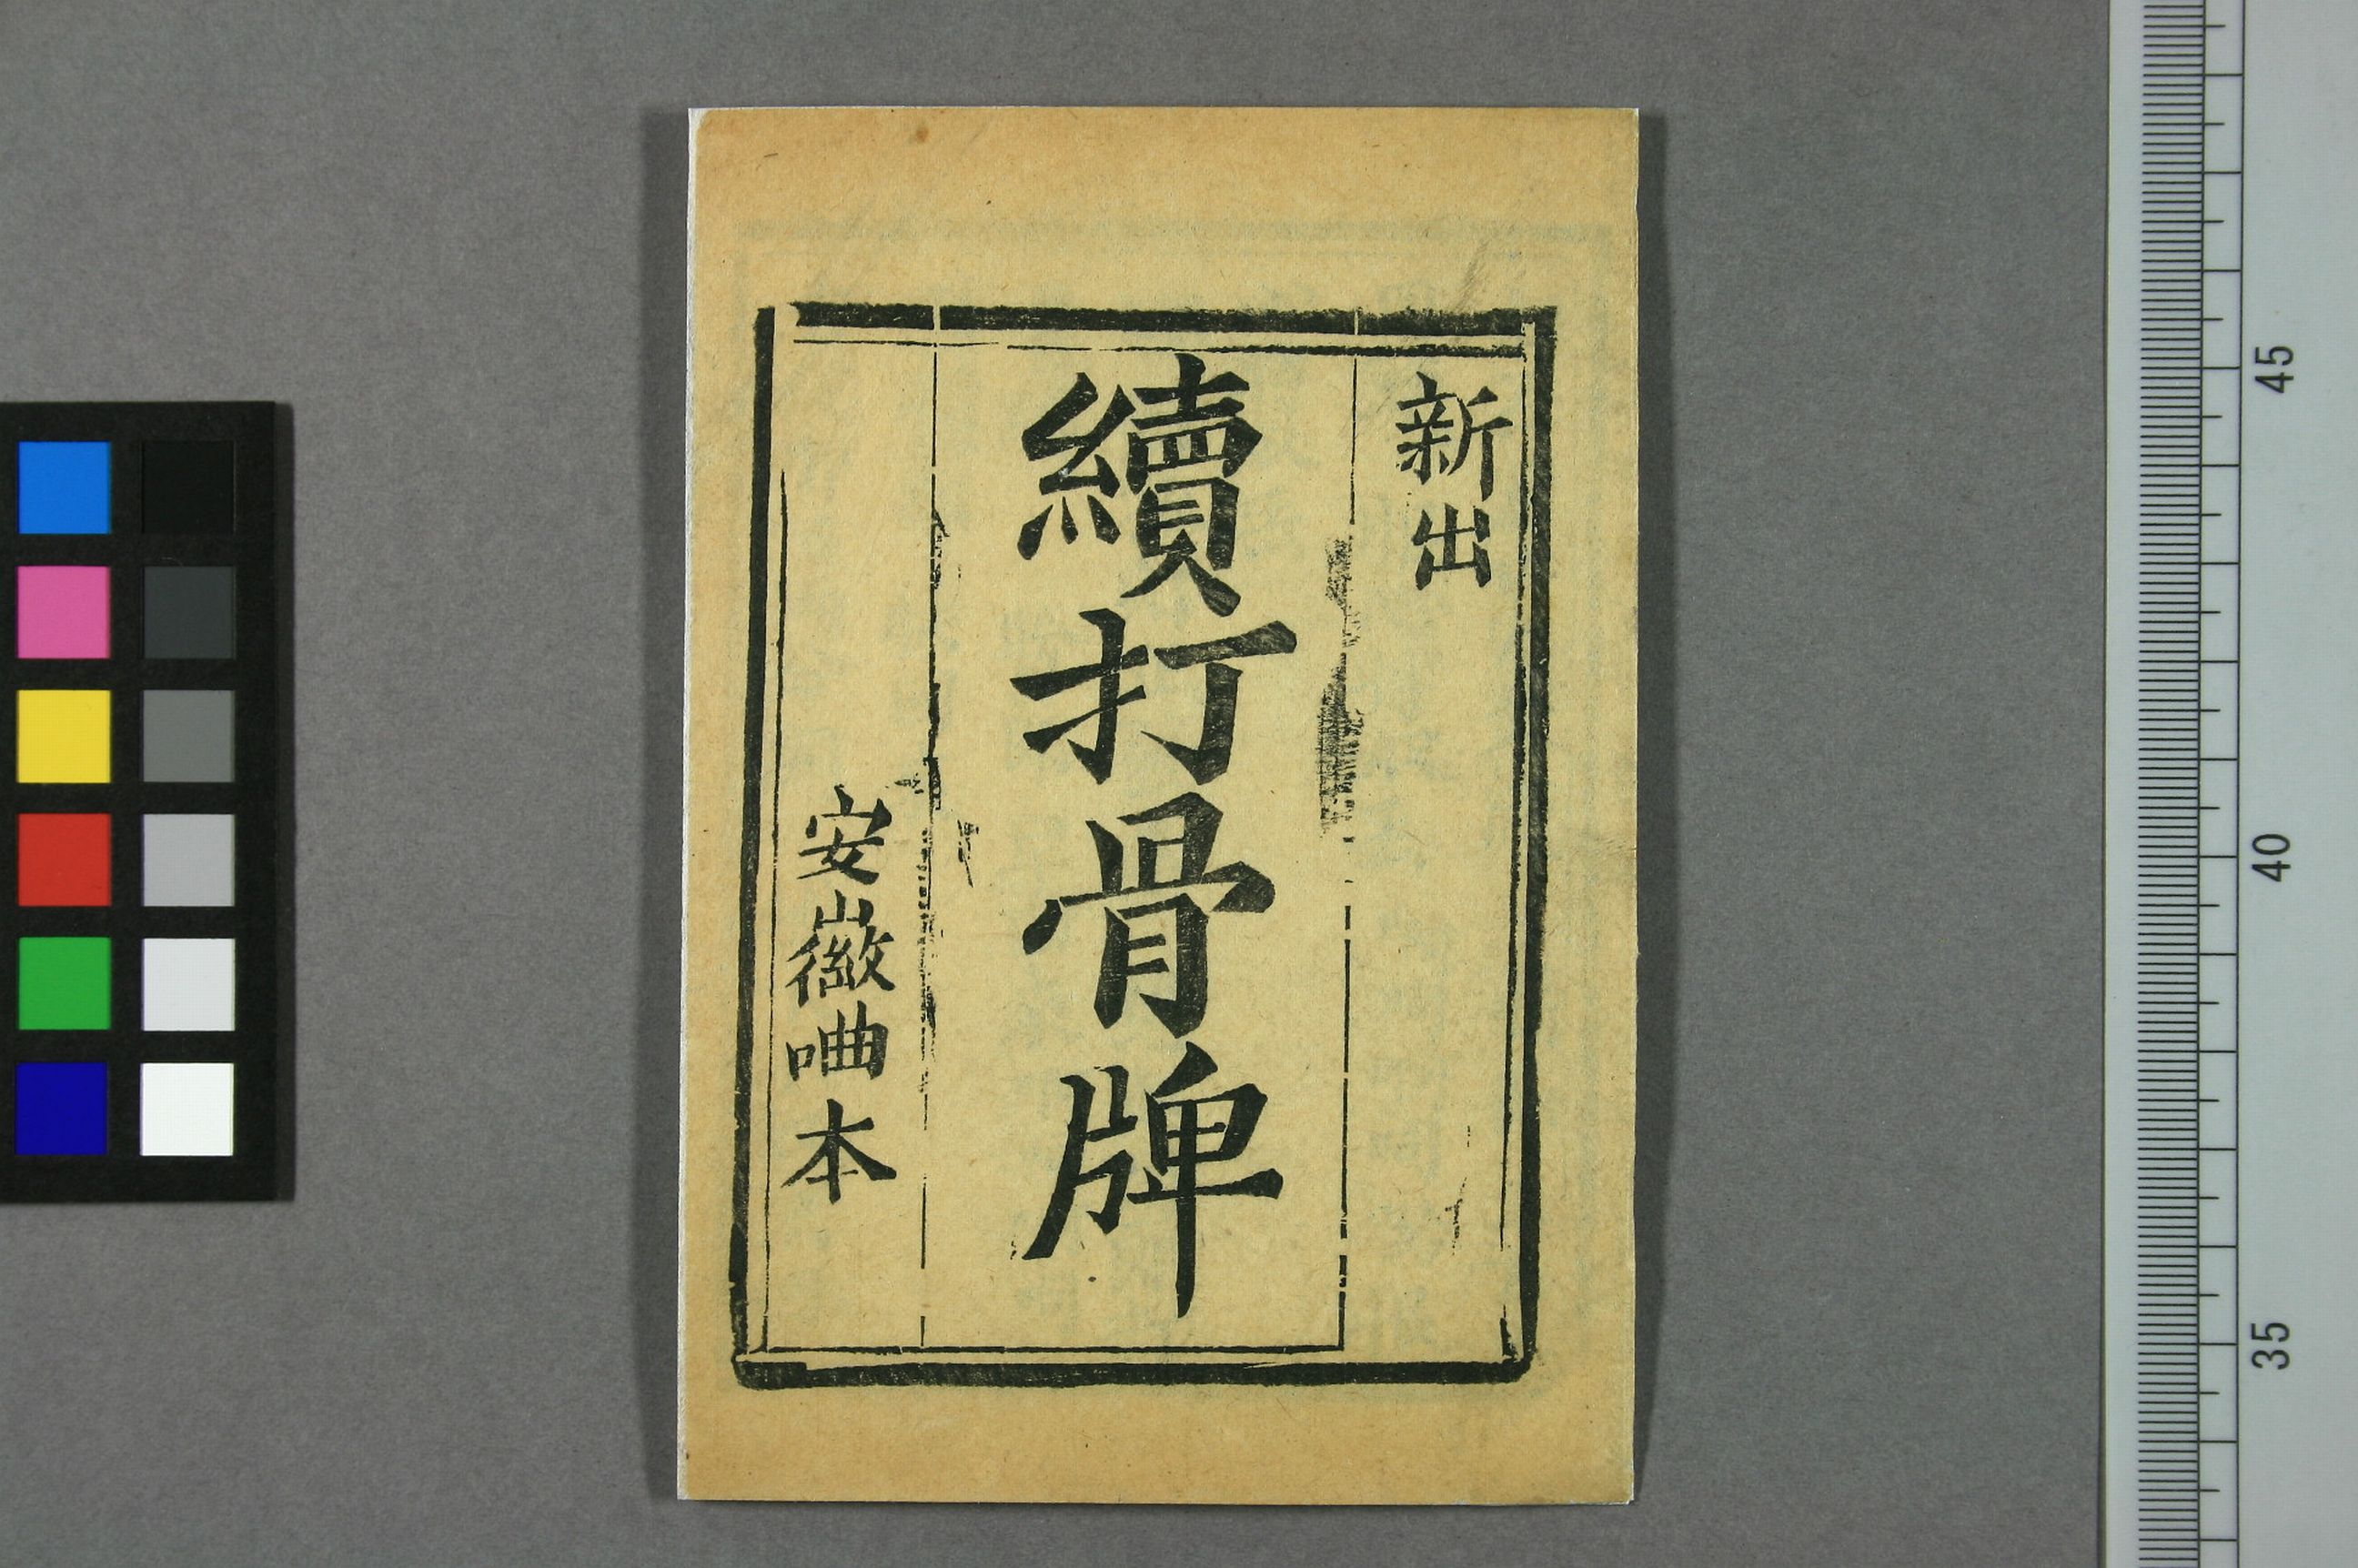 新出
續打骨牌
安徽㖆本
45
40
35